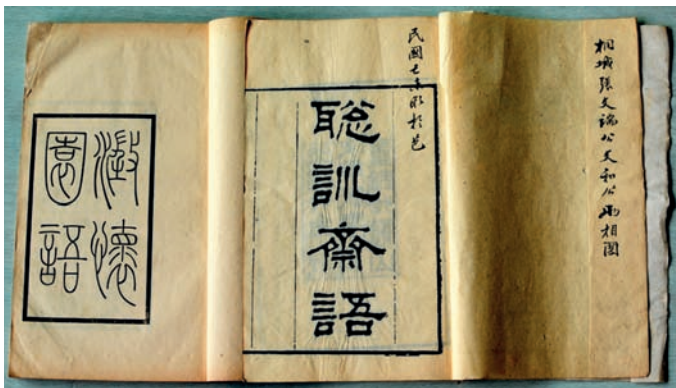 桐城張文端公文和公兩相國
民國七於邑
聰訓齋語
澂懷
園語